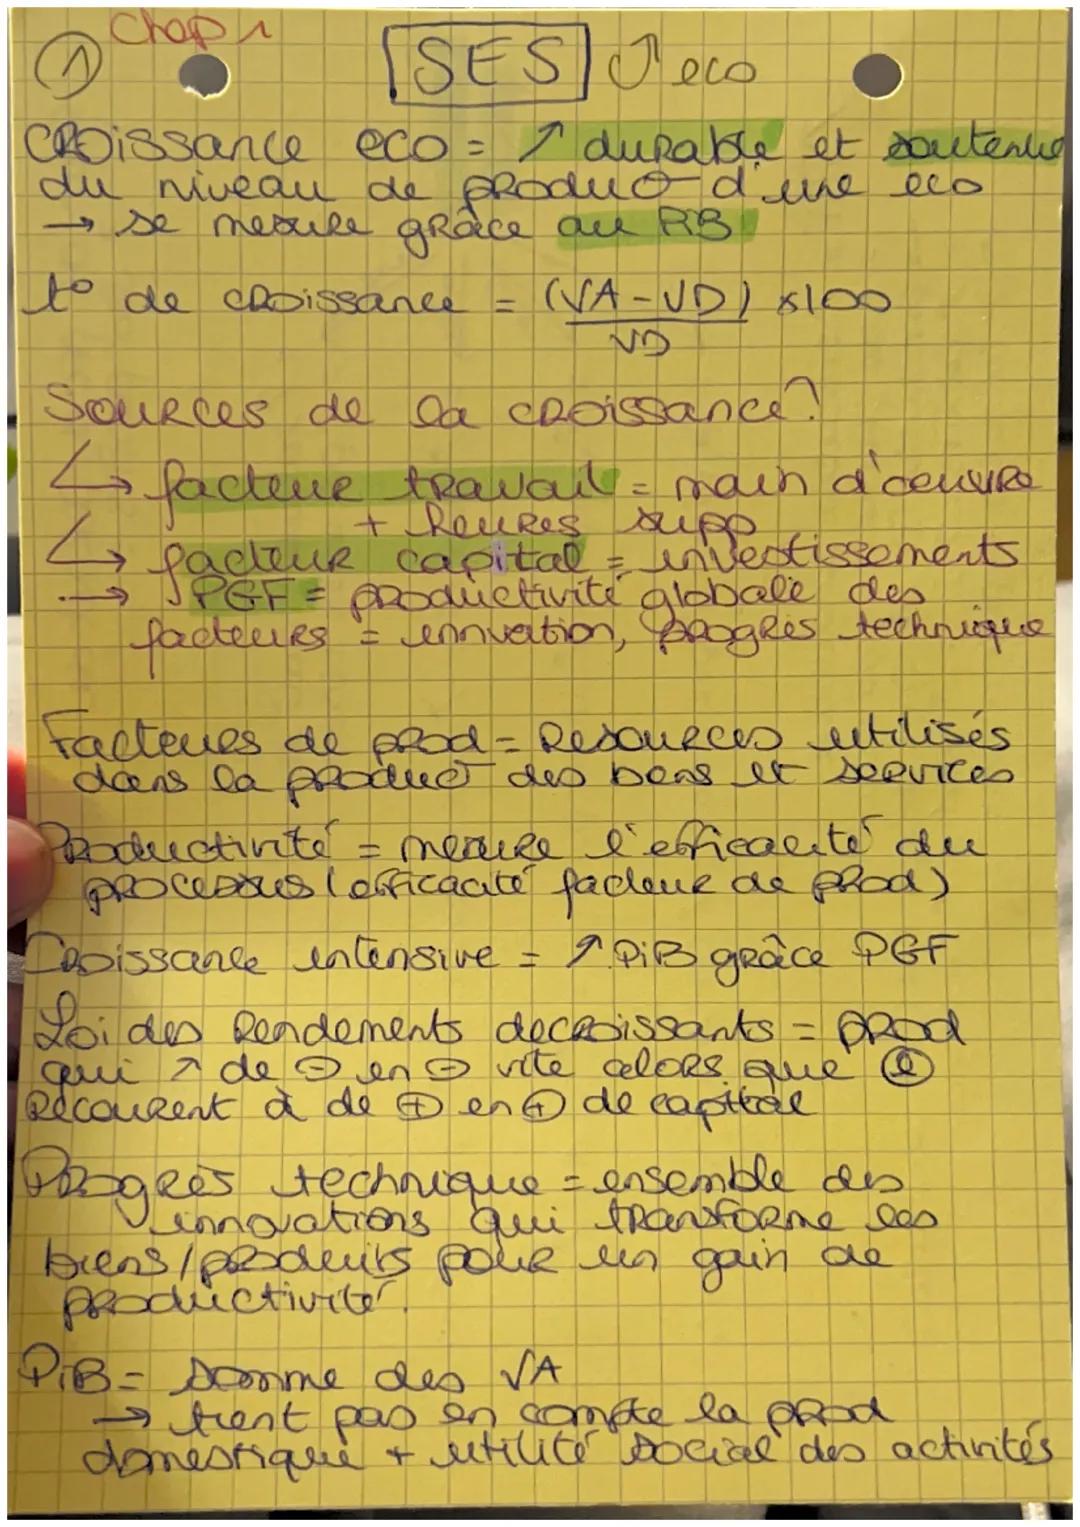 Chap 1
① SES ↗ eco
CROissance eco = ↗ durable et soutenue
du niveau de product° d'une eco
→ se mesure grâce au PIB
t° de croissance = (VA - VD) x100
VD
Sources de la croissance?
↳ facteur travail = main d'oeuvre
+ heures supp
↳ facteur capital = investissements
→ PGF = productivité globale des
facteurs = innvation, progrès technique
Facteurs de prod = Resources utilisés
dans la product° des biens et services
Productivité = mesure l'efficacité du
processus (efficacité facteur de prod)
Croissance intensive = ↗ PiB grâce PGF
Loi des Rendements decroissants = prod
qui ↗ de ⊖ en ⊖ vite alors que ⓔ
Recourent à de ⊕ en ⊕ de capital
Progrès technique = ensemble des
innovations qui transforme les
biens/produits pour un gain de
productivité.
PiB = somme des VA
→ tient pas en compte la prod
domestique + utilité social des activités